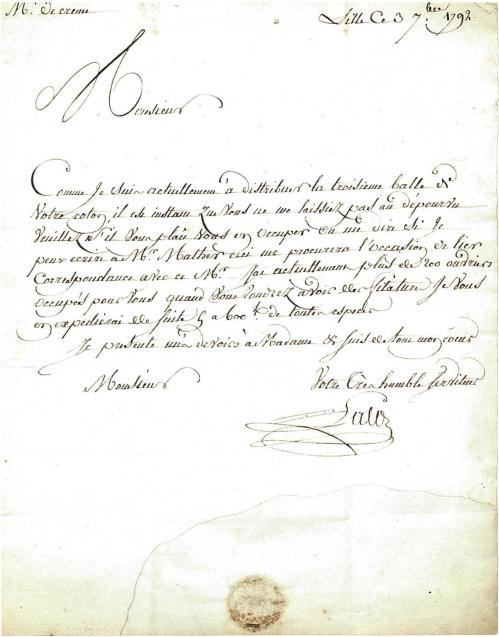 Mr. Decreme
Lille Ce 3 7.bre 1792
Monsieur
Comme Je suis actuellement à distribuer la troisieme balle de
Votre coton, il est instant que Vous ne me laissiez pas au dépourvu
Veuillez s'il Vous plait Vous en Occuper Et me dire Si Je
peux ecrire à Mr. Mather ceci me procurera l'Occasion de lier
Correspondance avec ce Mr. Jai actuellement plus de 200 ouvriers
Occupés pour Vous quand Vous Voudrez avoir des filature Je Vous
en expedierai de suite 5 a 600 # de toutes especes
Je presente mes devoirs à Madame & suis de tout mon coeur
Monsieur
Votre très humble Serviteur